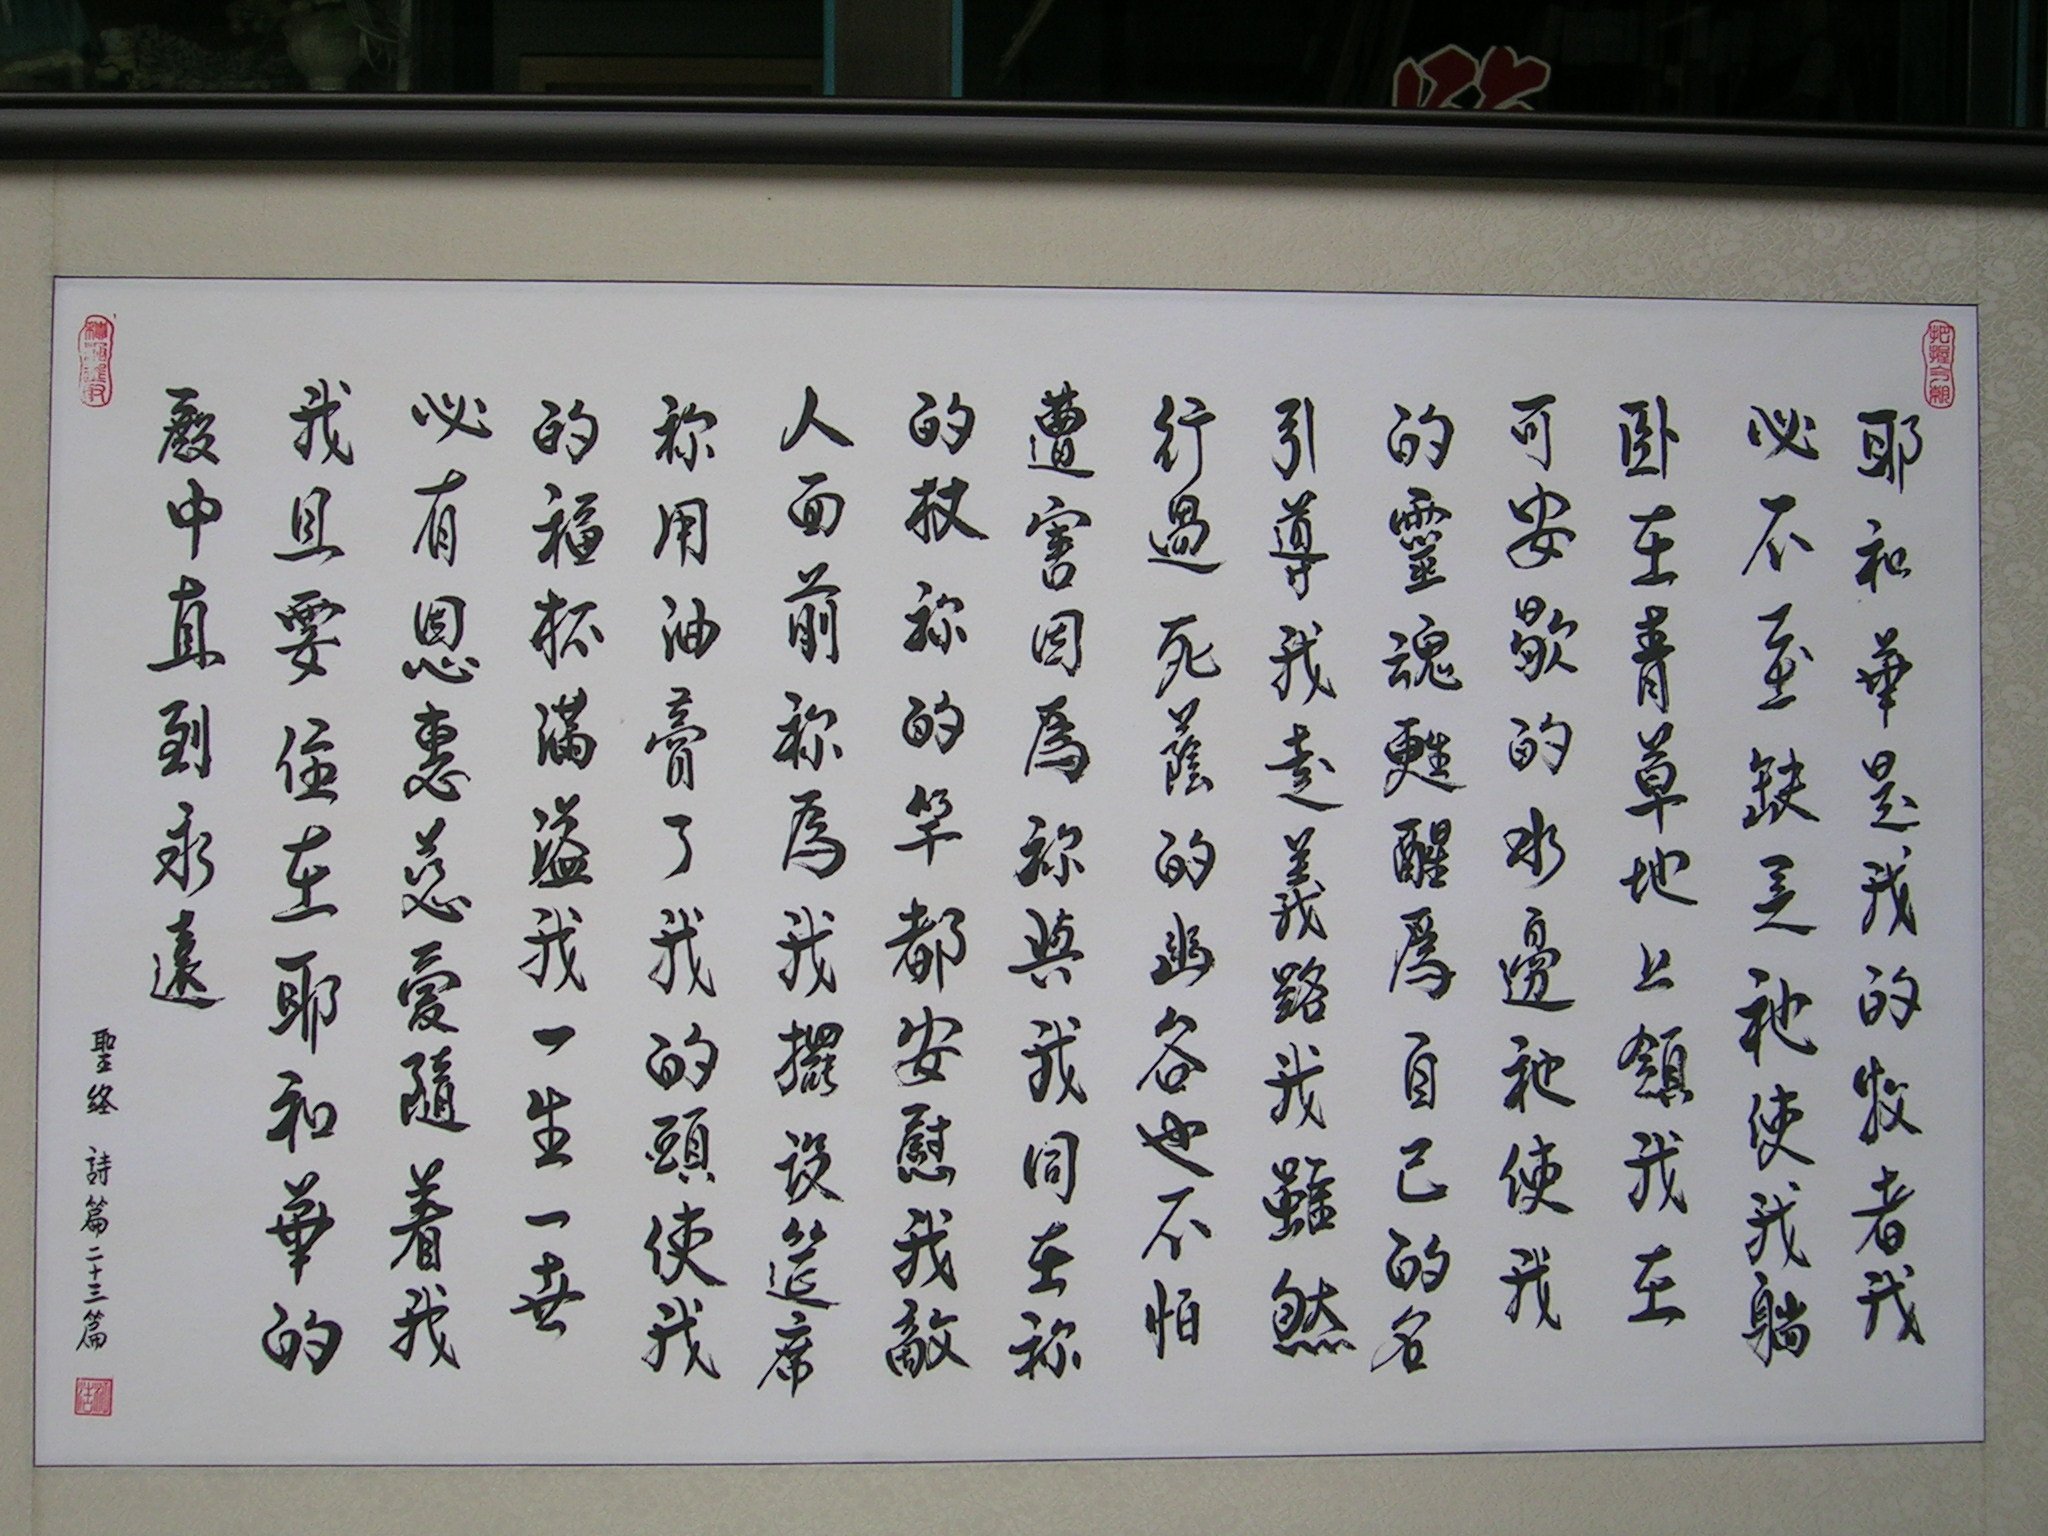 把握今朝
耶和華是我的牧者我
必不至缺乏祂使我躺
臥在青草地上領我在
可安歇的水邊祂使我
的靈魂甦醒為自己的名
引導我走義路我雖然
行過死蔭的幽谷也不怕
遭害因為祢與我同在祢
的杖祢的竿都安慰我敵
人面前祢為我擺設筵席
祢用油膏了我的頭使我
的福杯滿溢我一生一世
必有恩惠慈愛隨着我
我且要住在耶和華的
殿中直到永遠
聖經 詩篇二十三篇